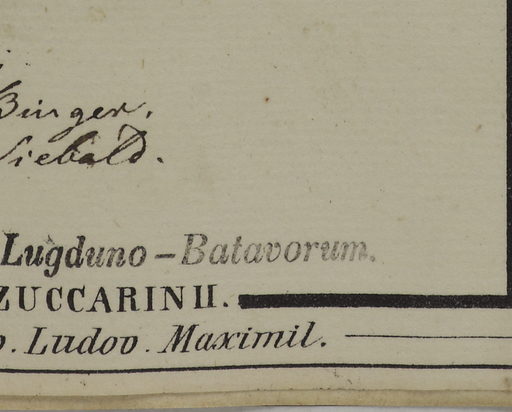 Bürger.
Siebold.
Lugduno-Batavorum.
ZUCCARINII.
. Ludov. Maximil.